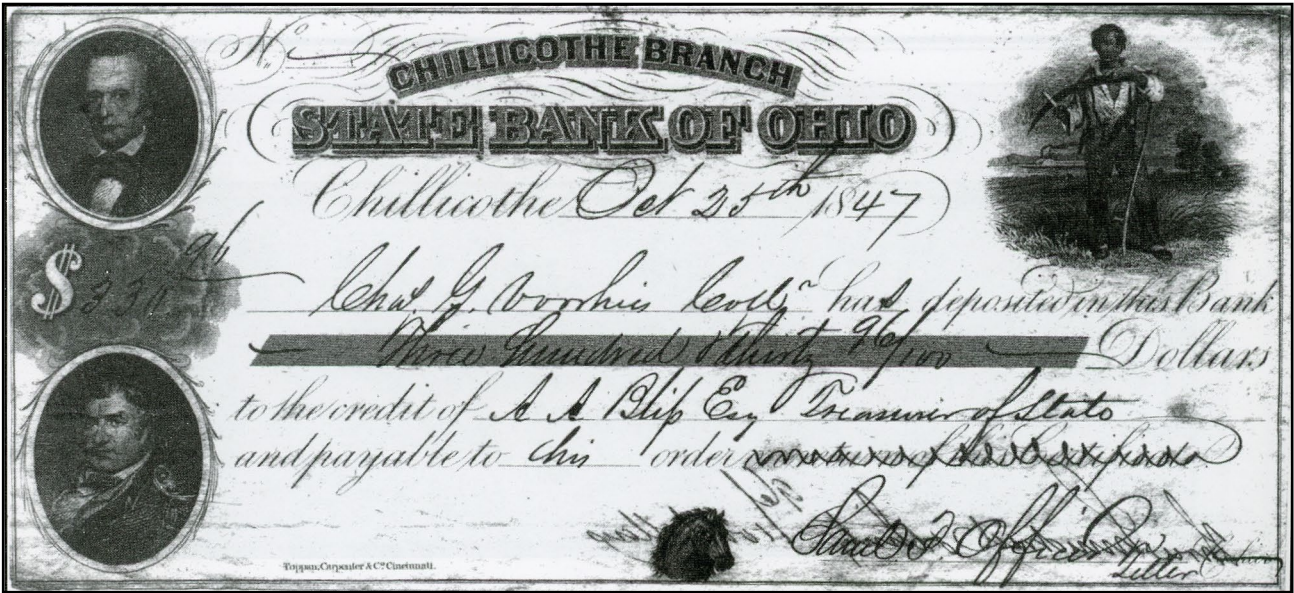 No
CHILLICOTHE BRANCH
STATE BANK OF OHIO
Chillicothe Oct 25th 1847
$ 330 96
Chas. G. Voorhies Coll.r has deposited in this Bank
Three Hundred & thirty 96/100 Dollars
to the credit of A A Bliss Esq Treasurer of State
and payable to his order
Teller
Toppan, Carpenter & Co. Cincinnati.